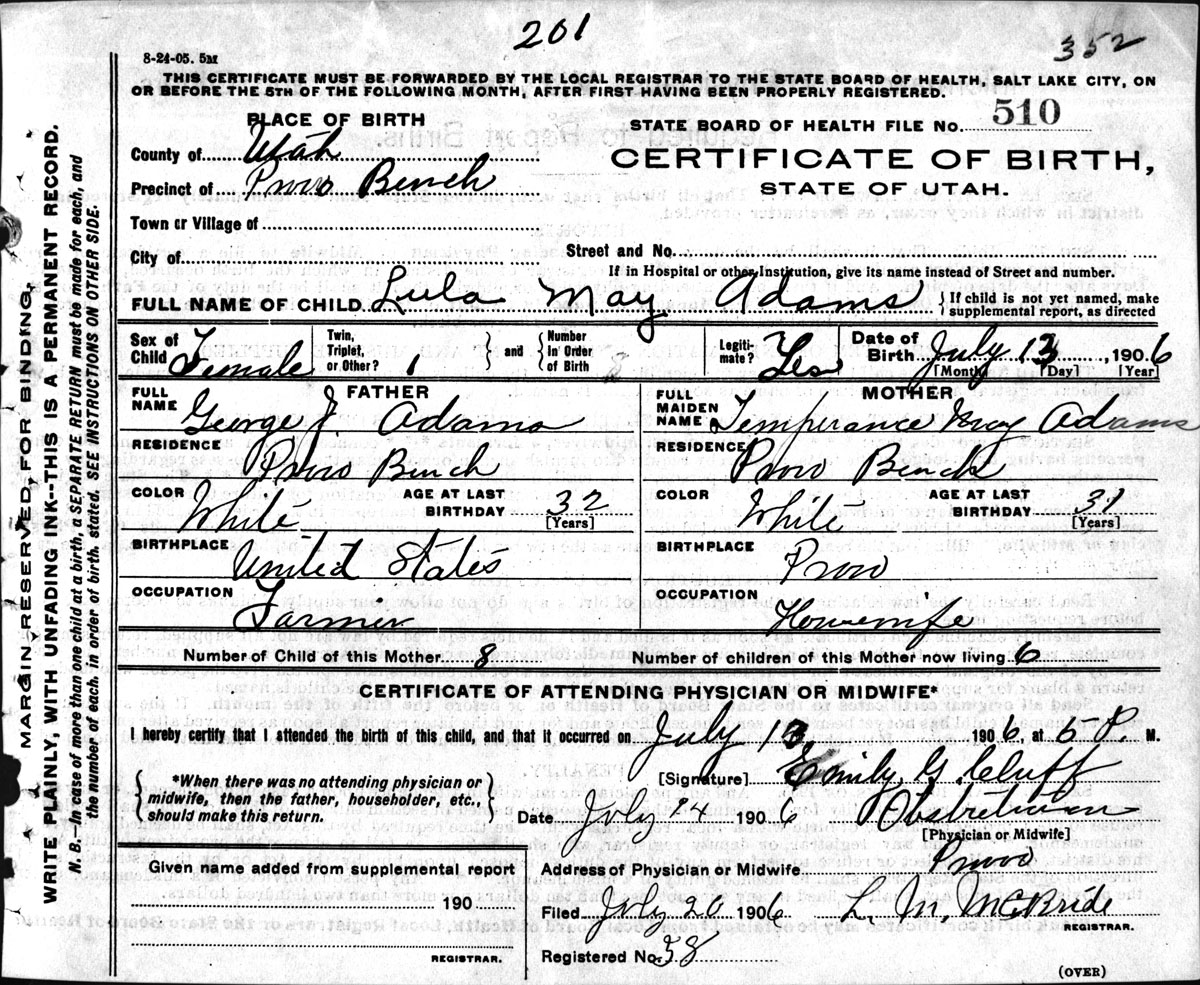 201
352
8-24-05. 5M
THIS CERTIFICATE MUST BE FORWARDED BY THE LOCAL REGISTRAR TO THE STATE BOARD OF HEALTH, SALT LAKE CITY, ON
OR BEFORE THE 5TH OF THE FOLLOWING MONTH, AFTER FIRST HAVING BEEN PROPERLY REGISTERED.
PLACE OF BIRTH
STATE BOARD OF HEALTH FILE No. 510
County of Utah
CERTIFICATE OF BIRTH,
Precinct of Provo Bench
STATE OF UTAH.
Town or Village of
City of
Street and No.
If in Hospital or other Institution, give its name instead of Street and number.
FULL NAME OF CHILD Lula May Adams { If child is not yet named, make
supplemental report, as directed
Sex of Child Female
Twin, Triplet, or Other? 1 } and { Number in Order of Birth
Legitimate? Yes
Date of Birth July 13, 1906
[Month] [Day] [Year]
FATHER
FULL NAME George J. Adams
RESIDENCE Provo Bench
COLOR White AGE AT LAST BIRTHDAY 32 [Years]
BIRTHPLACE United States
OCCUPATION Farmer
MOTHER
FULL MAIDEN NAME Temperance May Adams
RESIDENCE Provo Bench
COLOR White AGE AT LAST BIRTHDAY 31 [Years]
BIRTHPLACE Provo
OCCUPATION Housewife
Number of Child of this Mother 8
Number of children of this Mother now living 6
CERTIFICATE OF ATTENDING PHYSICIAN OR MIDWIFE*
I hereby certify that I attended the birth of this child, and that it occurred on July 13, 1906, at 5 P. M.
{ *When there was no attending physician or
midwife, then the father, householder, etc.,
should make this return. }
[Signature] Emily G Cluff
Date July 24 1906 Obstetrician
[Physician or Midwife]
Given name added from supplemental report
190
REGISTRAR.
Address of Physician or Midwife Provo
Filed July 20 1906 L. M. McBride
REGISTRAR.
Registered No. 58
(OVER)
MARGIN RESERVED FOR BINDING.
WRITE PLAINLY, WITH UNFADING INK--THIS IS A PERMANENT RECORD.
N. B.--In case of more than one child at a birth, a SEPARATE RETURN must be made for each, and
the number of each, in order of birth, stated. SEE INSTRUCTIONS ON OTHER SIDE.